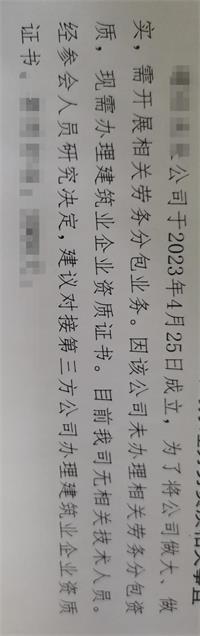 公司于2023年4月25日成立，为了将公司做大、做
实，需开展相关劳务分包业务。因该公司未办理相关劳务分包资
质，现需办理建筑业企业资质证书。目前我司无相关技术人员。
经参会人员研究决定，建议对接第三方公司办理建筑业企业资质
证书。